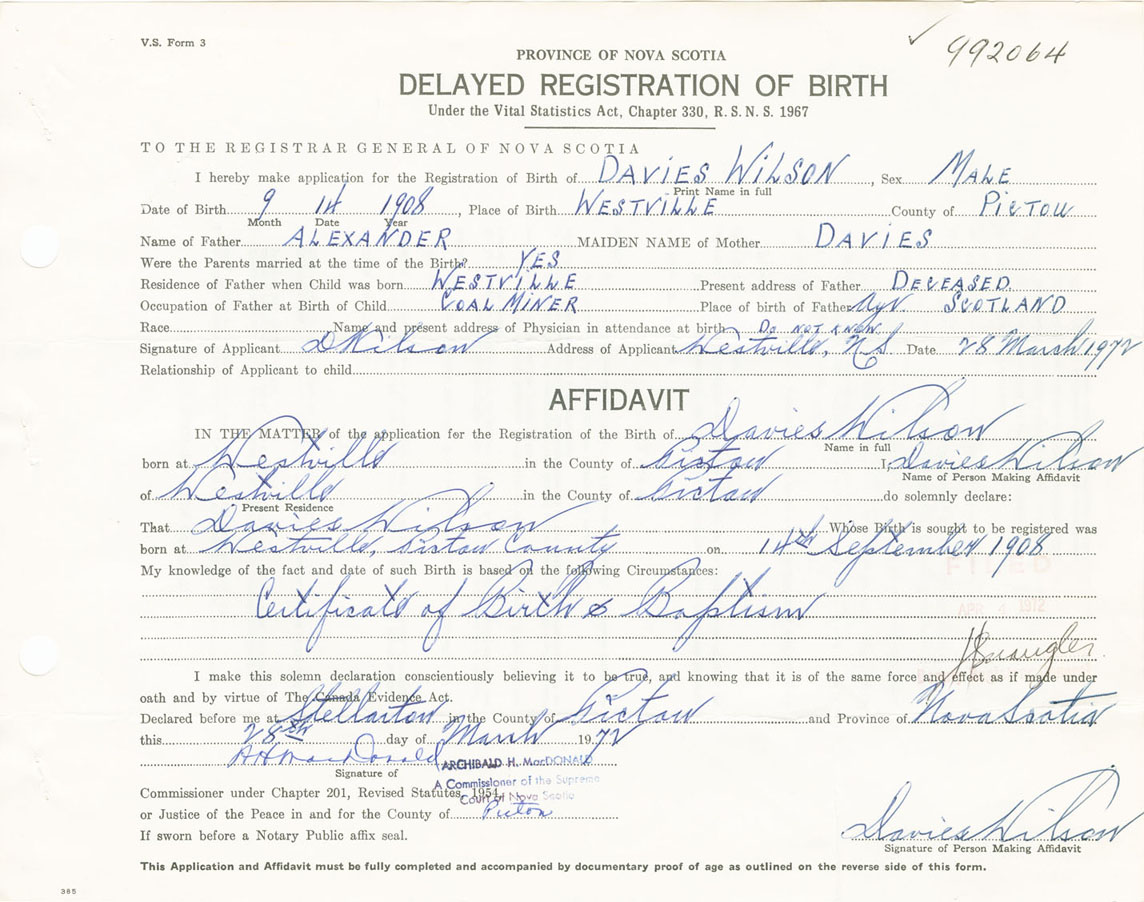 V.S. Form 3
✓ 992064
PROVINCE OF NOVA SCOTIA
DELAYED REGISTRATION OF BIRTH
Under the Vital Statistics Act, Chapter 330, R.S.N.S. 1967
TO THE REGISTRAR GENERAL OF NOVA SCOTIA
I hereby make application for the Registration of Birth of DAVIES WILSON, Sex MALE
Print Name in full
Date of Birth 9 14 1908, Place of Birth WESTVILLE County of PICTOU
Month Date Year
Name of Father ALEXANDER MAIDEN NAME of Mother DAVIES
Were the Parents married at the time of the Birth? YES
Residence of Father when Child was born WESTVILLE Present address of Father DECEASED
Occupation of Father at Birth of Child COAL MINER Place of birth of Father Ayr. SCOTLAND
Race Name and present address of Physician in attendance at birth DO NOT KNOW
Signature of Applicant D Wilson Address of Applicant Westville, N.S. Date 28 March 1972
Relationship of Applicant to child
AFFIDAVIT
IN THE MATTER of the application for the Registration of the Birth of Davies Wilson
Name in full
born at Westville in the County of Pictou I, Davies Wilson
Name of Person Making Affidavit
of Westville in the County of Pictou do solemnly declare:
Present Residence
That Davies Wilson Whose Birth is sought to be registered was
born at Westville, Pictou County on 14th September 1908
My knowledge of the fact and date of such Birth is based on the following Circumstances:
FILED
Certificate of Birth & Baptism
APR 4 1972
I make this solemn declaration conscientiously believing it to be true, and knowing that it is of the same force and effect as if made under
oath and by virtue of The Canada Evidence Act.
Declared before me at Stellarton in the County of Pictou and Province of Nova Scotia
this 28th day of March 1972
A H MacDonald ARCHIBALD H. MacDONALD
Signature of
A Commissioner of the Supreme
Court of Nova Scotia
Commissioner under Chapter 201, Revised Statutes, 1954,
or Justice of the Peace in and for the County of Pictou
If sworn before a Notary Public affix seal.
Davies Wilson
Signature of Person Making Affidavit
This Application and Affidavit must be fully completed and accompanied by documentary proof of age as outlined on the reverse side of this form.
385